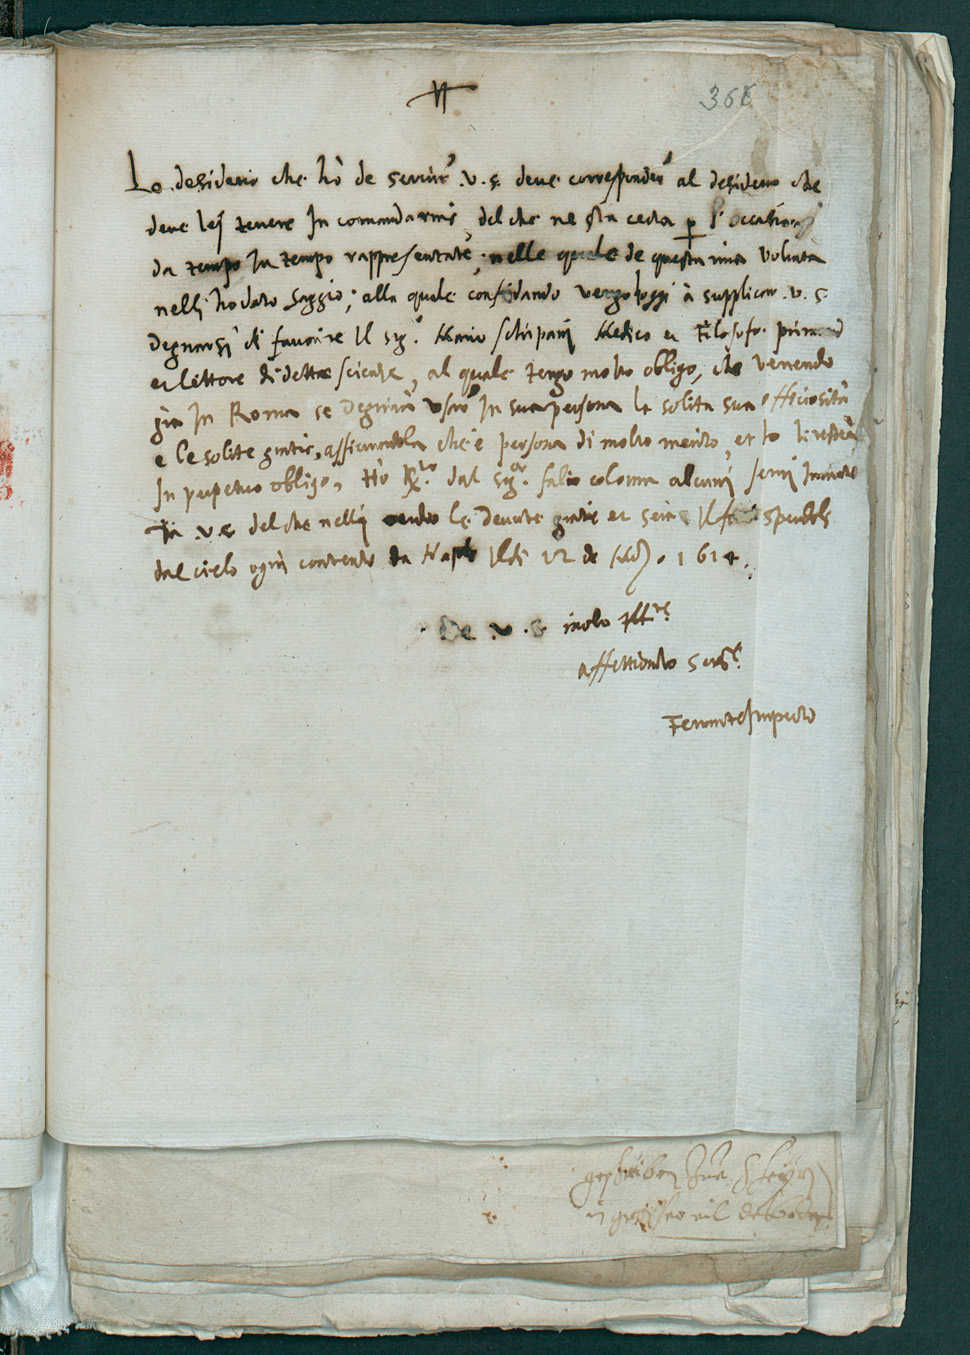 368
Lo desiderio che hò de servire .v.s. deve correspondere al desiderio che
deve lej tenere In comandarmi, del che ne sta certa p l'occasionj
da tempo In tempo rappresentate, nelle quale de questa mia volunta
nelli ho dato saggio; alla quale confidando vengo hoggi à supplicar .v.s.
degnarsi di favorire Il sig.r Mario Schipanj Medico et Filosofo primario
et lettore di dette scienze, al quale tengo molto obligo, che venendo
già In Roma se degnirà usare In sua persona la solita sua officiosità
e le solite gratie, che è persona di molto merito, et Io li resterò
In perpetuo obligo, Hò dal sig.or fabio colonna alcuni semi Inviati
da v.s. del che nelli rendo le devute gratie et
dal cielo ognj contento da Napoli Ildi 22 de 1614.
De v.s. molto Ill.re
affettionato Ser.re
Ferrante Imperato